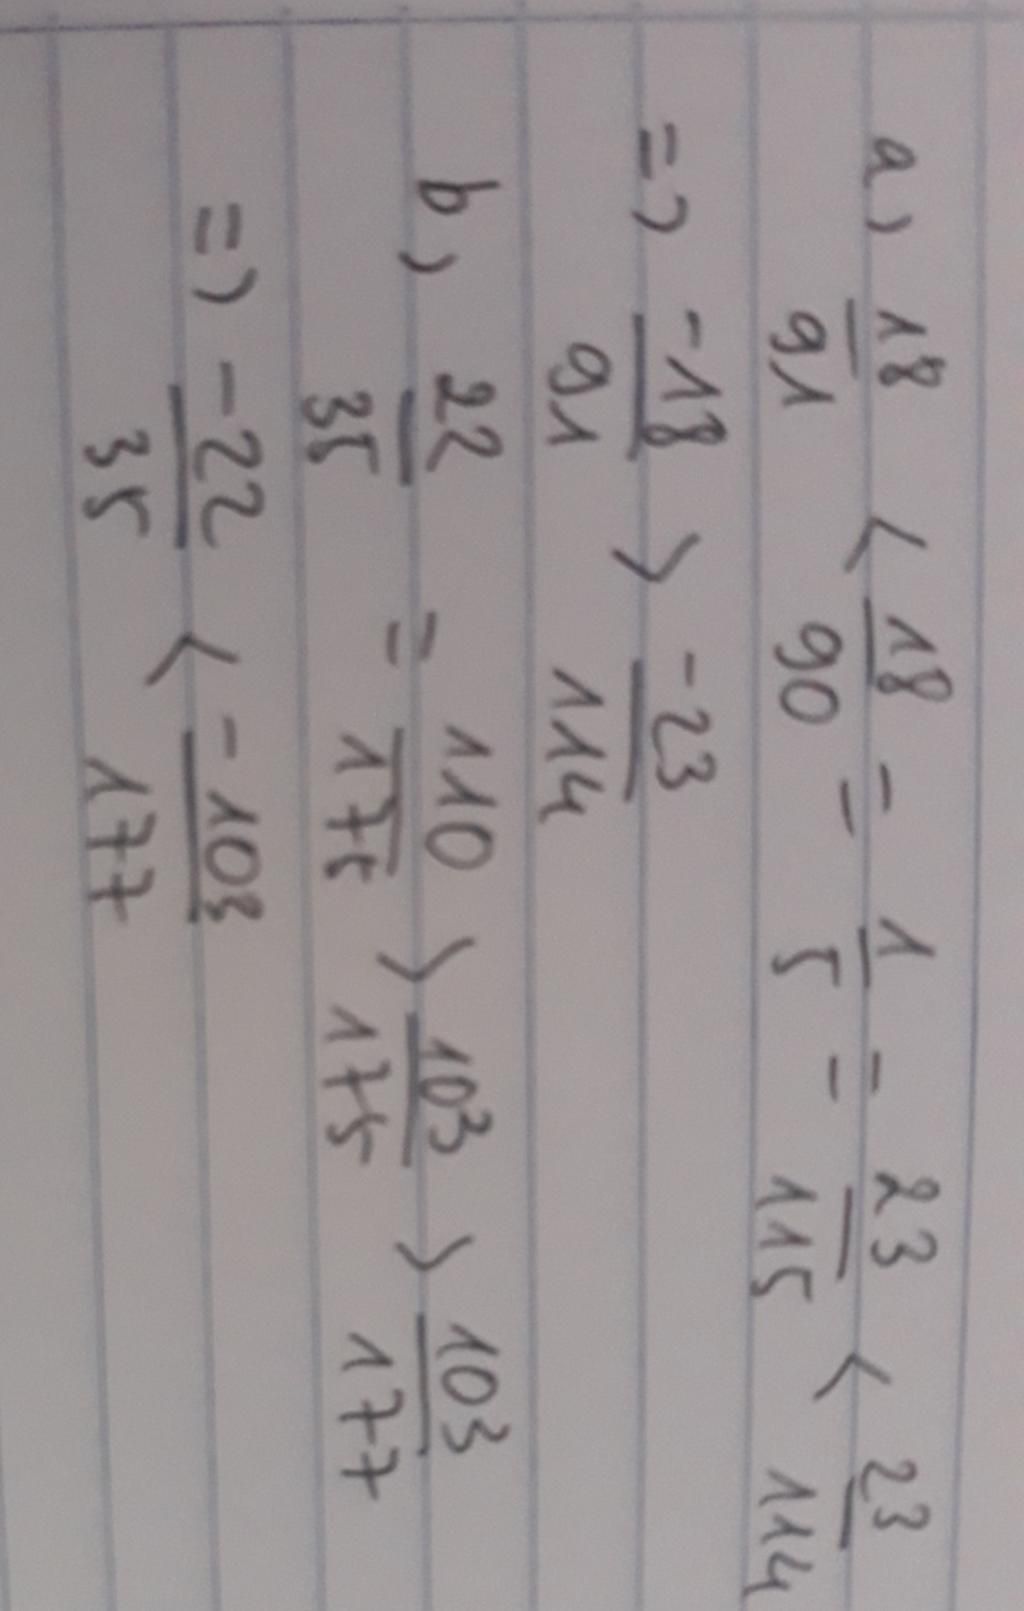 a, 18/91 < 18/90 = 1/5 = 23/115 < 23/114
=> -18/91 > -23/114
b, 22/35 = 110/175 > 103/175 > 103/177
=> -22/35 < -103/177